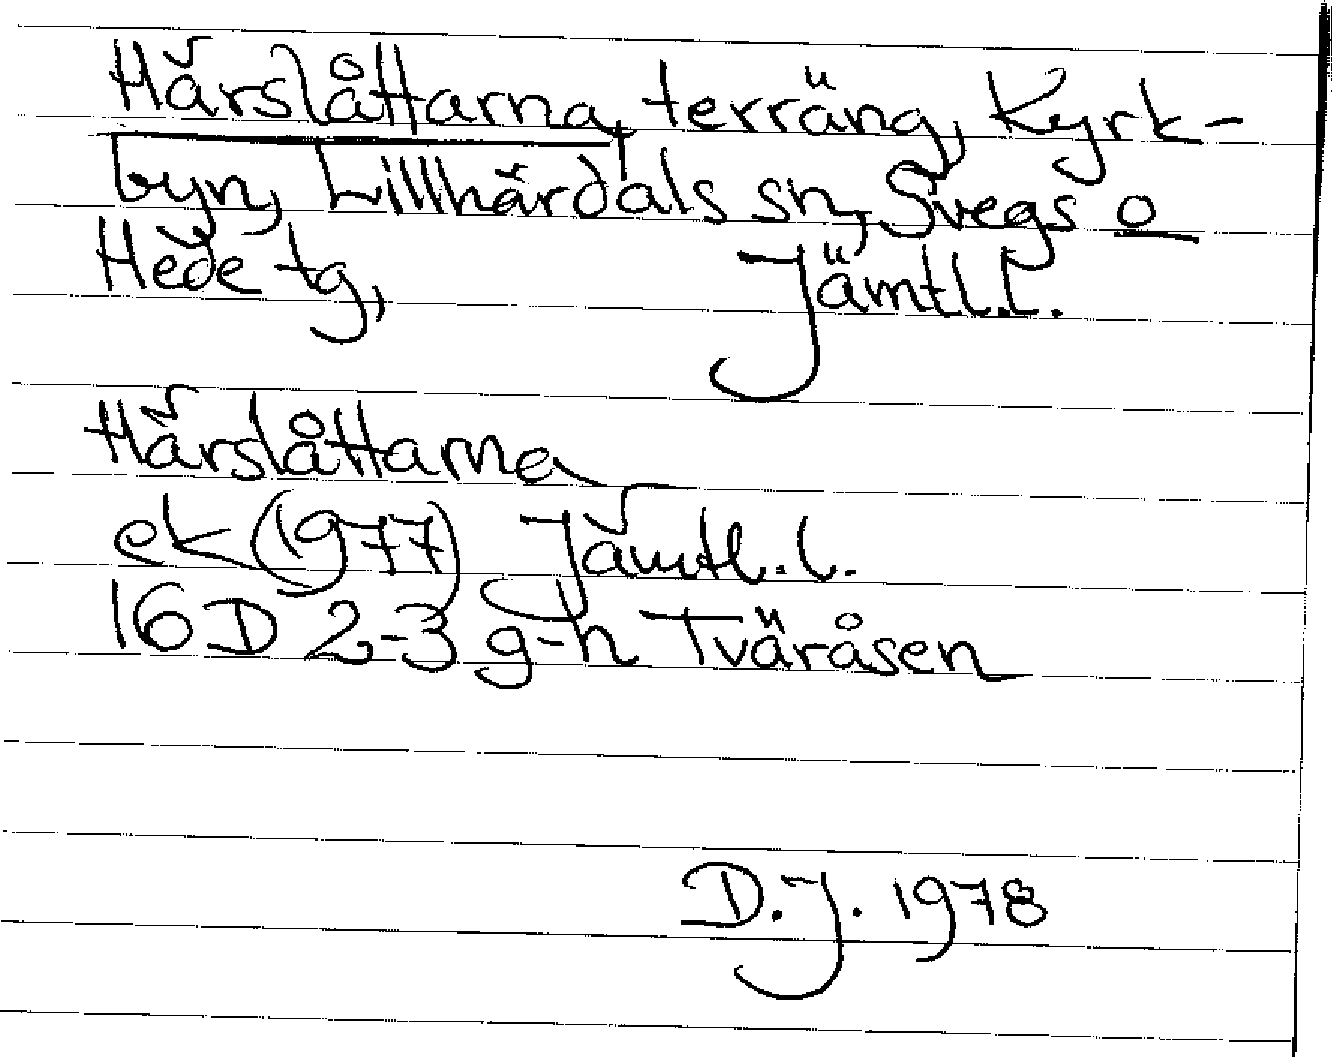 Härslåttarna, terräng, Kyrk-
byn, Lillhärdals sn, Svegs o
Hede tg, Jämtl.l.
Härslåttarna
ek (1977) Jämtl.l.
16 D 2-3 g-h Tväråsen
D.J. 1978